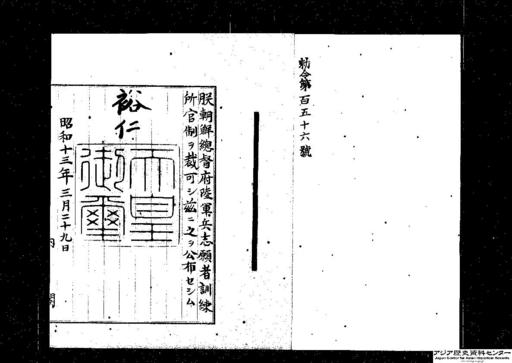 勅令第百五十六號
朕朝鮮總督府陸軍兵志願者訓練
所官制ヲ裁可シ茲ニ之ヲ公布セシム
裕仁
天皇
御璽
昭和十三年三月二十九日
内閣
アジア歴史資料センター
Japan Center for Asian Historical Records